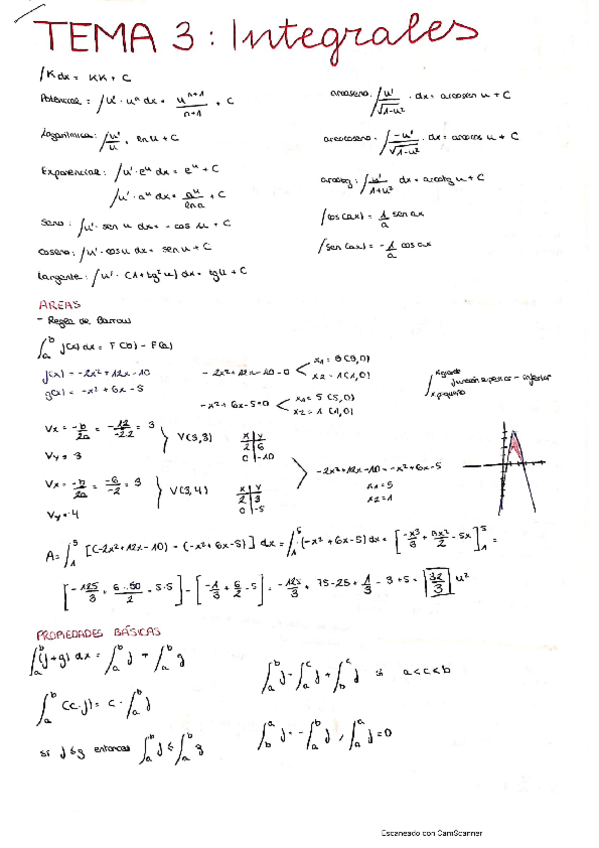 TEMA 3 : Integrales
∫K dx = KK + C
Potencial = ∫u' · uⁿ dx = uⁿ⁺¹/n+1 + C
Logarítmica: ∫u'/u = ln u + C
Exponencial: ∫u' · eᵘ dx = eᵘ + C
∫u' · aᵘ dx = aᵘ/ln a + C
Seno: ∫u' · sen u dx = - cos u + C
Coseno: ∫u' · cos u dx = sen u + C
tangente: ∫u' · (1 + tg² u) dx = tg u + C
arcoseno: ∫u'/√1-u² · dx = arcosen u + C
arcocoseno: ∫-u'/√1-u² · dx = arcos u + C
arcotg: ∫u'/1+u² dx = arcotg u + C
∫cos(ax) = 1/a sen ax
∫sen(ax) = -1/a cos ax
AREAS
- Regla de Barrow
∫ₐᵇ f(x) dx = F(b) - F(a)
f(x) = -2x² + 12x - 10
g(x) = -x² + 6x - 5
-2x² + 12x - 10 = 0 < x1 = 5 (5,0)
x2 = 1 (1,0)
-x² + 6x - 5 = 0 < x1 = 5 (5,0)
x2 = 1 (1,0)
∫ x grande x pequeño función superior - inferior
Vx = -b/2a = -12/-2·2 = 3
Vy = 3
V(3,3)
x y
2 6
0 -10
Vx = -b/2a = -6/-2 = 3
Vy = 4
V(3,4)
x y
2 3
0 -5
-2x² + 12x - 10 = -x² + 6x - 5
x1 = 5
x2 = 1
A = ∫₁⁵ [(-2x² + 12x - 10) - (-x² + 6x - 5)] dx = ∫₁⁵ (-x² + 6x - 5) dx = [-x³/3 + 6x²/2 - 5x]₁⁵ =
[-125/3 + 6·50/2 - 5·5] - [-1/3 + 6/2 - 5] = -125/3 + 75 - 25 + 1/3 - 3 + 5 = 32/3 u²
PROPIEDADES BÁSICAS
∫ₐᵇ (f + g) dx = ∫ₐᵇ f + ∫ₐᵇ g
∫ₐᵇ (c · f) = c · ∫ₐᵇ f
si f ≤ g entonces ∫ₐᵇ f ≤ ∫ₐᵇ g
∫ₐᵇ f = ∫ₐᶜ f + ∫ᵇᶜ f si a < c < b
∫ᵇᵃ f = - ∫ₐᵇ f , ∫ₐᵃ f = 0
Escaneado con CamScanner